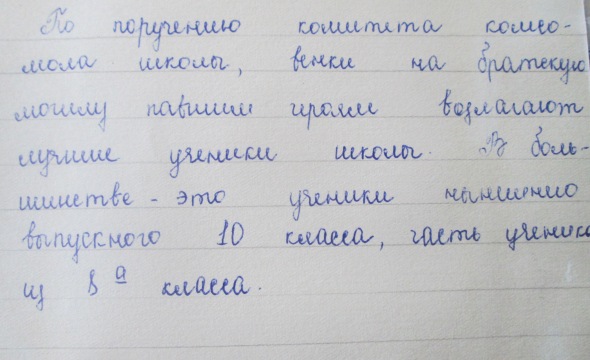 По поручению комитета комсо-
мола школы, венки на братскую
могилу павшим героям возлагают
лучшие ученики школы. В боль-
шинстве - это ученики нынешнего
выпускного 10 класса, часть ученико
из 8 а класса.